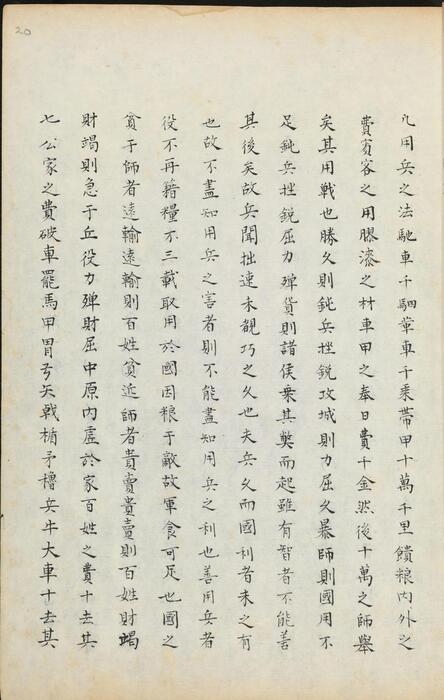 20
凡用兵之法馳車千駟革車千乘帶甲十萬千里饋粮內外之
費賓客之用膠漆之材車甲之奉日費千金然後十萬之師舉
矣其用戰也勝久則鈍兵挫銳攻城則力屈久暴師則國用不
足鈍兵挫銳屈力殫貨則諸侯乘其獘而起雖有智者不能善
其後矣故兵聞拙速未覩巧之久也夫兵久而國利者未之有
也故不盡知用兵之害者則不能盡知用兵之利也善用兵者
役不再藉糧不三載取用於國因粮于敵故軍食可足也國之
貧于師者遠輸遠輸則百姓貧近師者貴賣貴賣則百姓財竭
財竭則急于丘役力殫財屈中原內虛於家百姓之費十去其
七公家之費破車罷馬甲胄弓矢戟楯矛櫓兵牛大車十去其